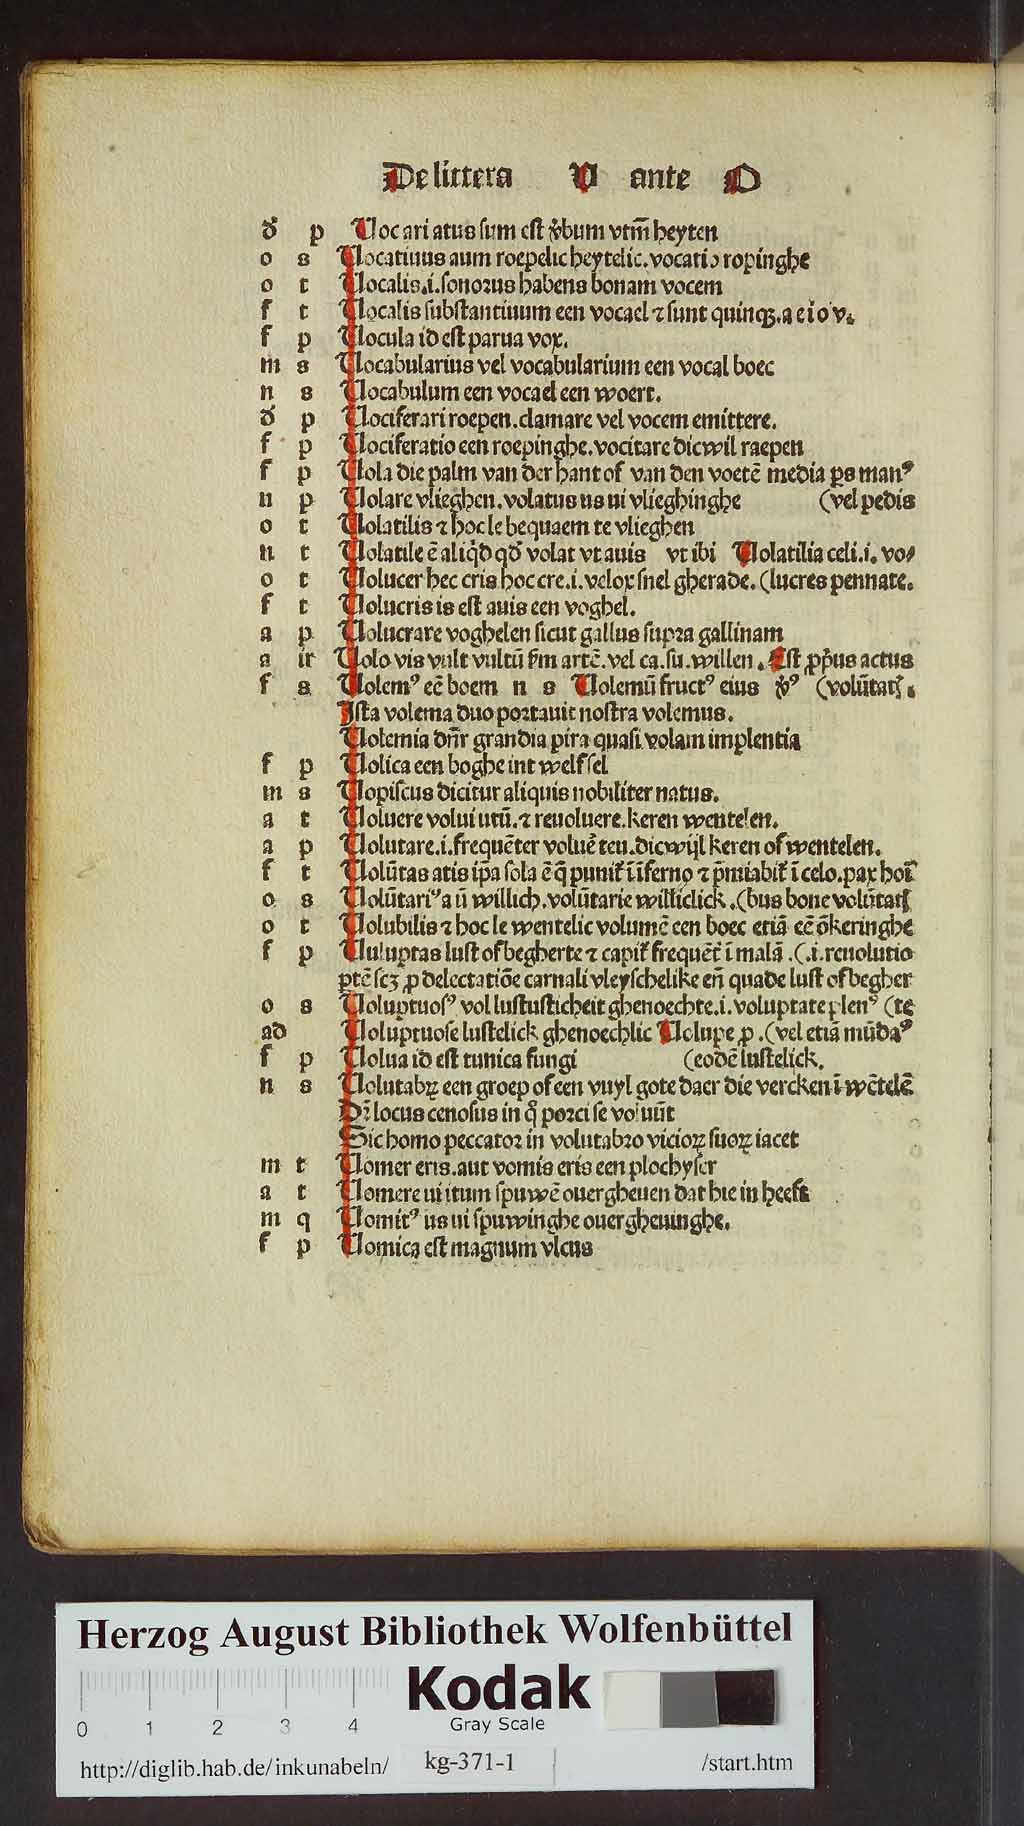 De littera V ante O
đ p Vocari atus sum est v̄bum vtrm̄ heyten
o s Vocatiuus aum roepelic heytelic. vocatio ropinghe
o t Vocalis .i. sonorus habens bonam vocem
f t Vocalis substantiuum een vocael ⁊ sunt quinqꝫ. a e i o v.
f p Vocula id est parua vox.
m s Vocabularius vel vocabularium een vocal boec
n s Vocabulum een vocael een woert.
đ p Vociferari roepen. clamare vel vocem emittere.
f p Vociferatio een roepinghe. vocitare dicwil raepen
f p Vola die palm van der hant of van den voetē media ꝑs manꝰ
n p Volare vlieghen. volatus us ui vlieghinghe (vel pedis
o t Volatilis ⁊ hoc le bequaem te vlieghen
n t Volatile ē aliq̄d qđ volat vt auis vt ibi Volatilia celi .i. vo⸗
o t Volucer hec cris hoc cre .i. velox snel gherade. (lucres pennate.
f t Volucris is est auis een voghel.
a p Volucrare voghelen sicut gallus supra gallinam
a ir Volo vis vult vultū fm artē. vel ca. su. willen. Est ꝓp̄us actus
f s Volemꝰ eē boem n s Volemū fructꝰ eius v̄ꝰ (volūtatꝭ.
Ista volema duo portauit nostra volemus.
Volemia dn̄r grandia pira quasi volam implentia
f p Volica een boghe int welfsel
m s Vopiscus dicitur aliquis nobiliter natus.
a t Voluere volui utū. ⁊ reuoluere. keren wentelen.
a p Volutare .i. frequēter voluē teu. dicwijl keren of wentelen.
f t Volūtas atis ip̄a sola ē q̄ punit̄ ī īferno ⁊ p̄miabit̄ ī celo. pax hoī
o s Volūtariꝰ a ū willich. volūtarie williclick. (bus bone volūtatꝭ
o t Volubilis ⁊ hoc le wentelic volumē een boec etiā eē ōkeringhe
f p Vuluptas lust of begherte ⁊ capit̄ frequēt̄ ī malā. (.i. reuolutio
ꝑtē scꝫ ꝓ delectatiōe carnali vleyschelike en̄ quade lust of begher
o s Voluptuosꝰ vol lustusticheit ghenoechte .i. voluptate plenꝰ (te
ad Voluptuose lustelick ghenoechlic Volupe ꝓ. (vel etiā mūdaꝰ
f p Volua id est tunica fungi (eodē lustelick.
n s Volutabꝝ een groep of een vuyl gote daer die vercken ī wētelē
Dr̄ locus cenosus in q̄ porci se voluūt
Sic homo peccator in volutabro vicioꝝ suoꝝ iacet
m t Vomer eris. aut vomis eris een plochyser
a t Vomere ui itum spuwē ouergheuen dat hie in heeft
m q Vomitꝰ us ui spuwinghe ouergheuinghe.
f p Vomica est magnum vlcus
Herzog August Bibliothek Wolfenbüttel
Kodak
Gray Scale
0 1 2 3 4
http://diglib.hab.de/inkunabeln/ kg-371-1 /start.htm